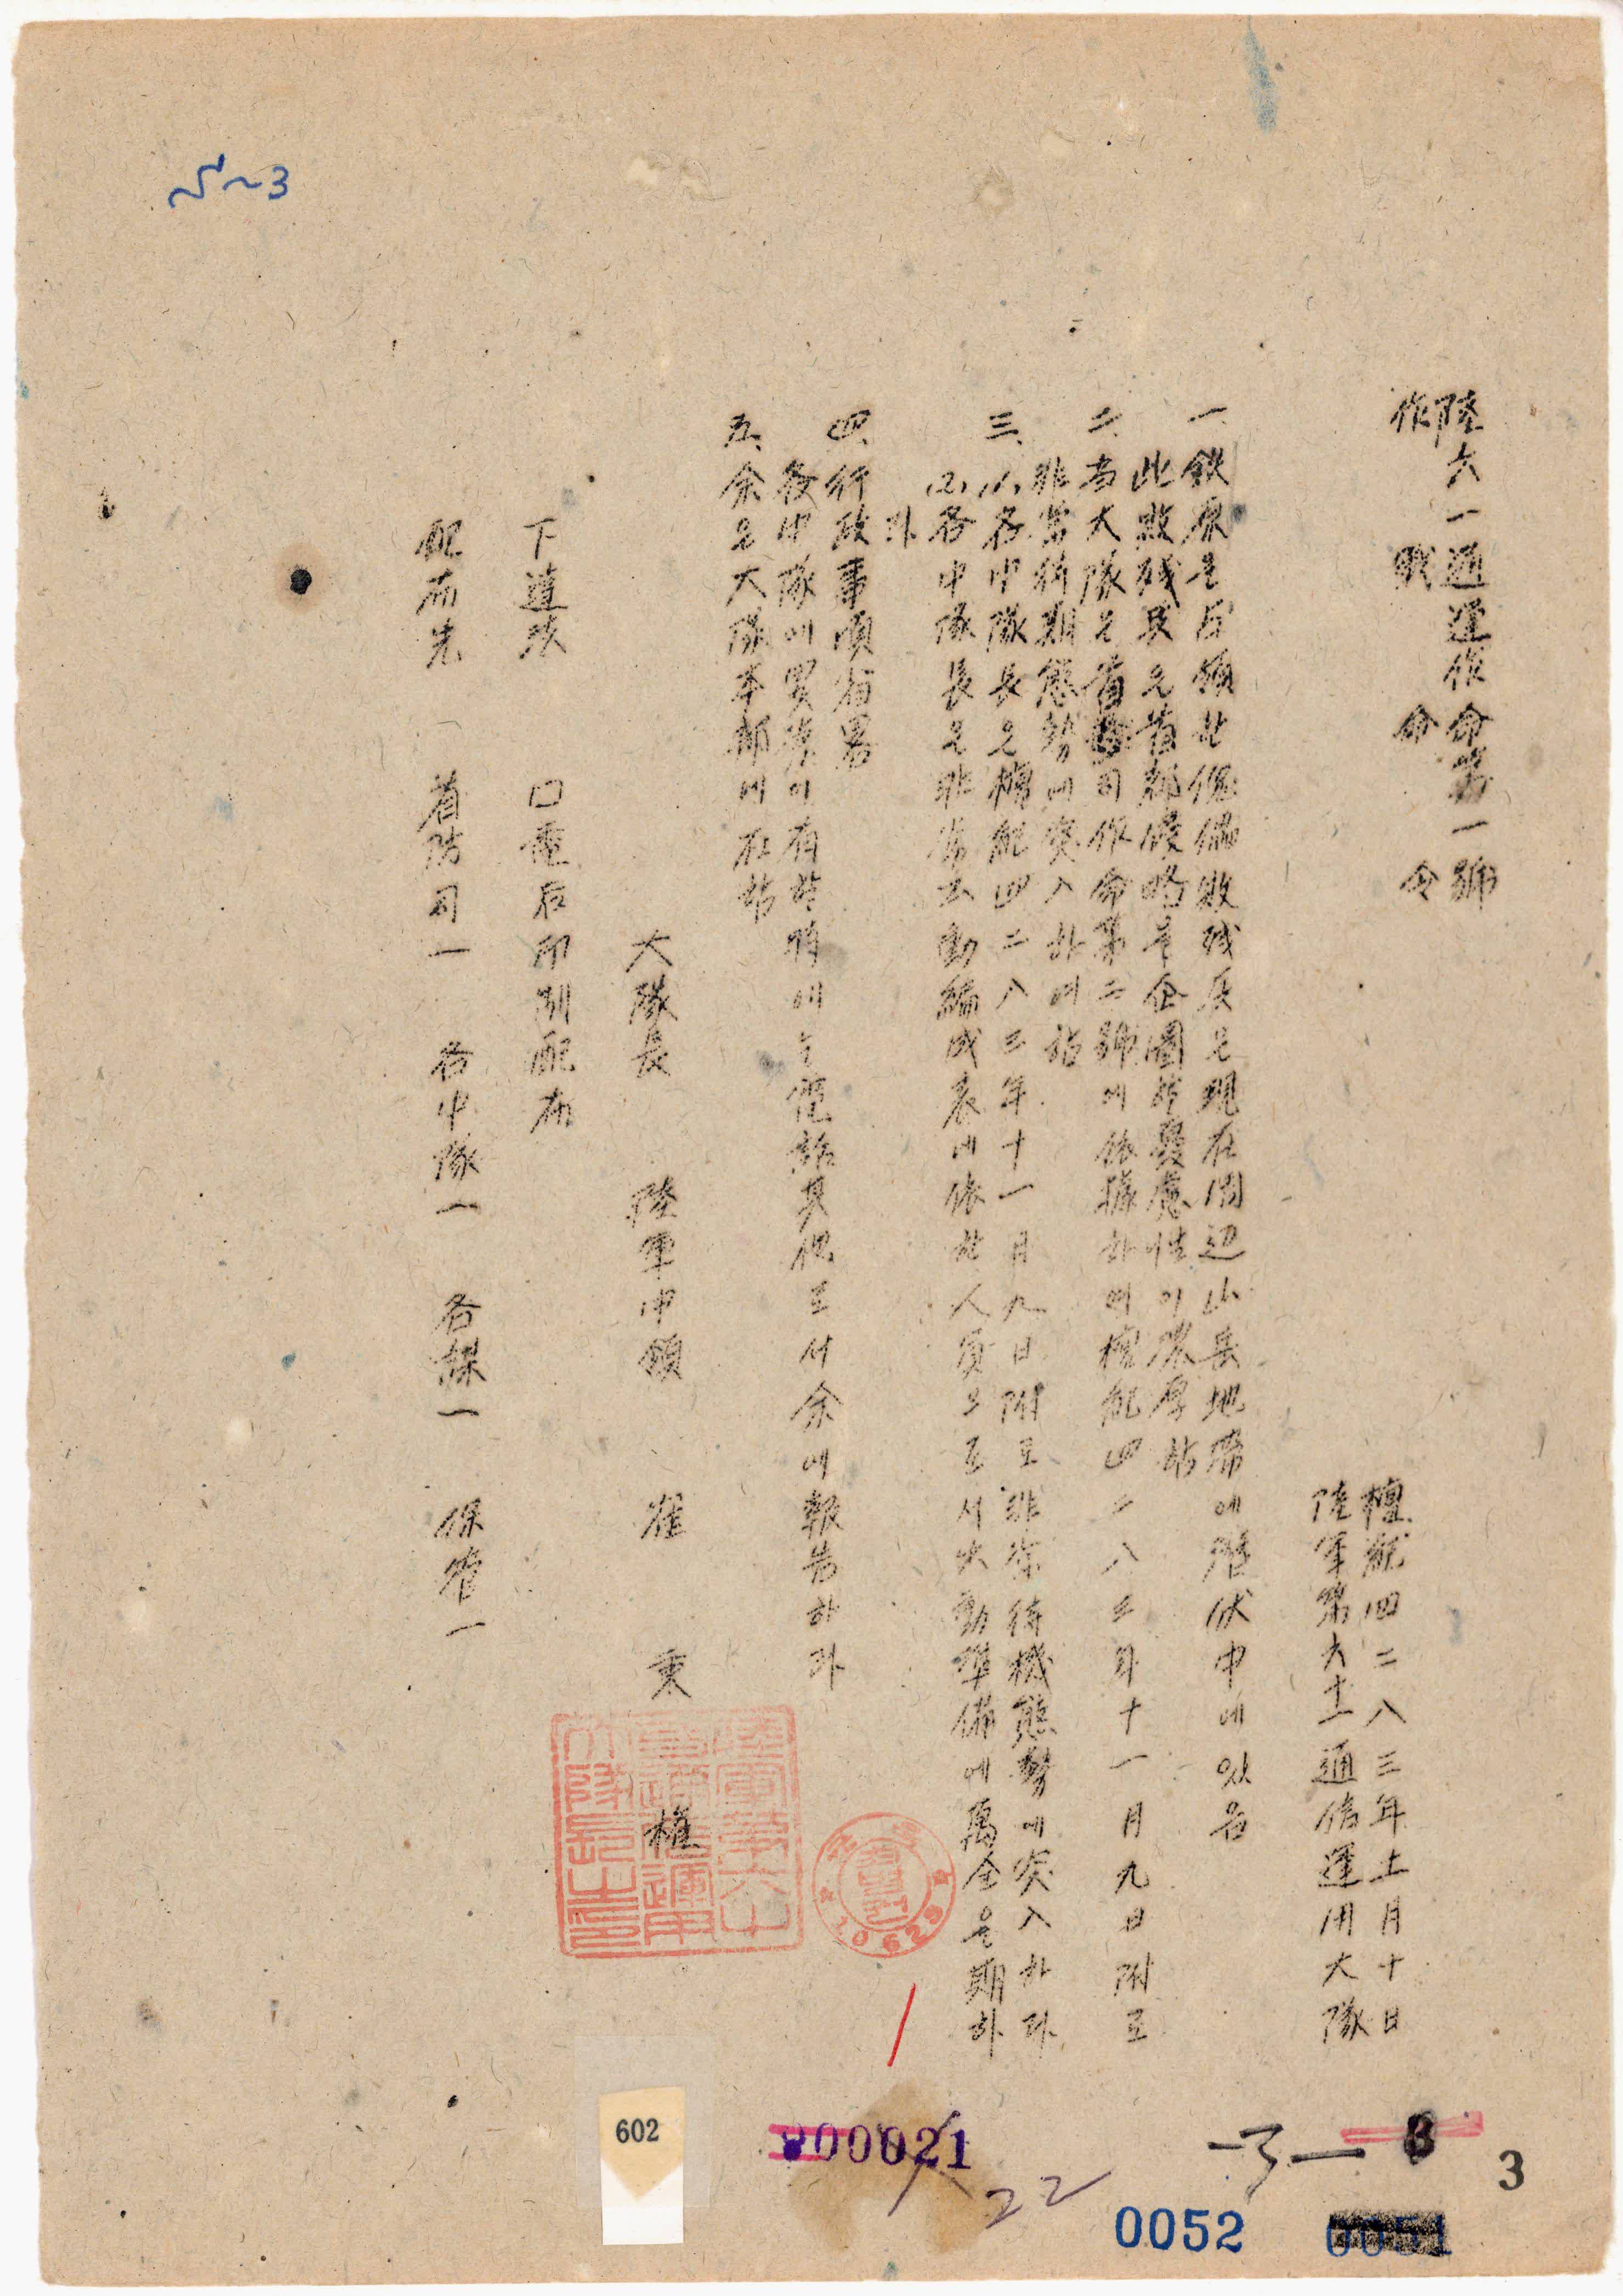 陸六一通運作命第一號
作戰命令
檀紀四二八三年十一月十日
陸軍第六十一通信運用大隊
一、鉄原을 占領한 傀儡敗残兵은 現在周辺山岳地帯에 潛伏中에 있음
此敗残兵은 首都侵略을 企圖할 憂慮性이 濃厚함
二、当大隊은 首防司作命第二號에 依據하여 檀紀四二八三年十一月九日附로
非常待期態勢에 突入하여 있음
三、(1)、各中隊長은 檀紀四二八三年十一月九日附로 非常待機態勢에 突入하라
(2)、各中隊長은 非常出動編成表에 依한 人員으로서 出動準備에 萬全을 期하
라
四、行政事項省畧
各中隊에 異常이 有할 時에는 電話其他로서 余에 報告하라
五、余은 大隊本部에 在함
大隊長 陸軍中領 崔秉權
下達法 口達后印刷配布
配布先 首防司一 各中隊一 各課一 保管一
602
000021
22
-3-
3
0052